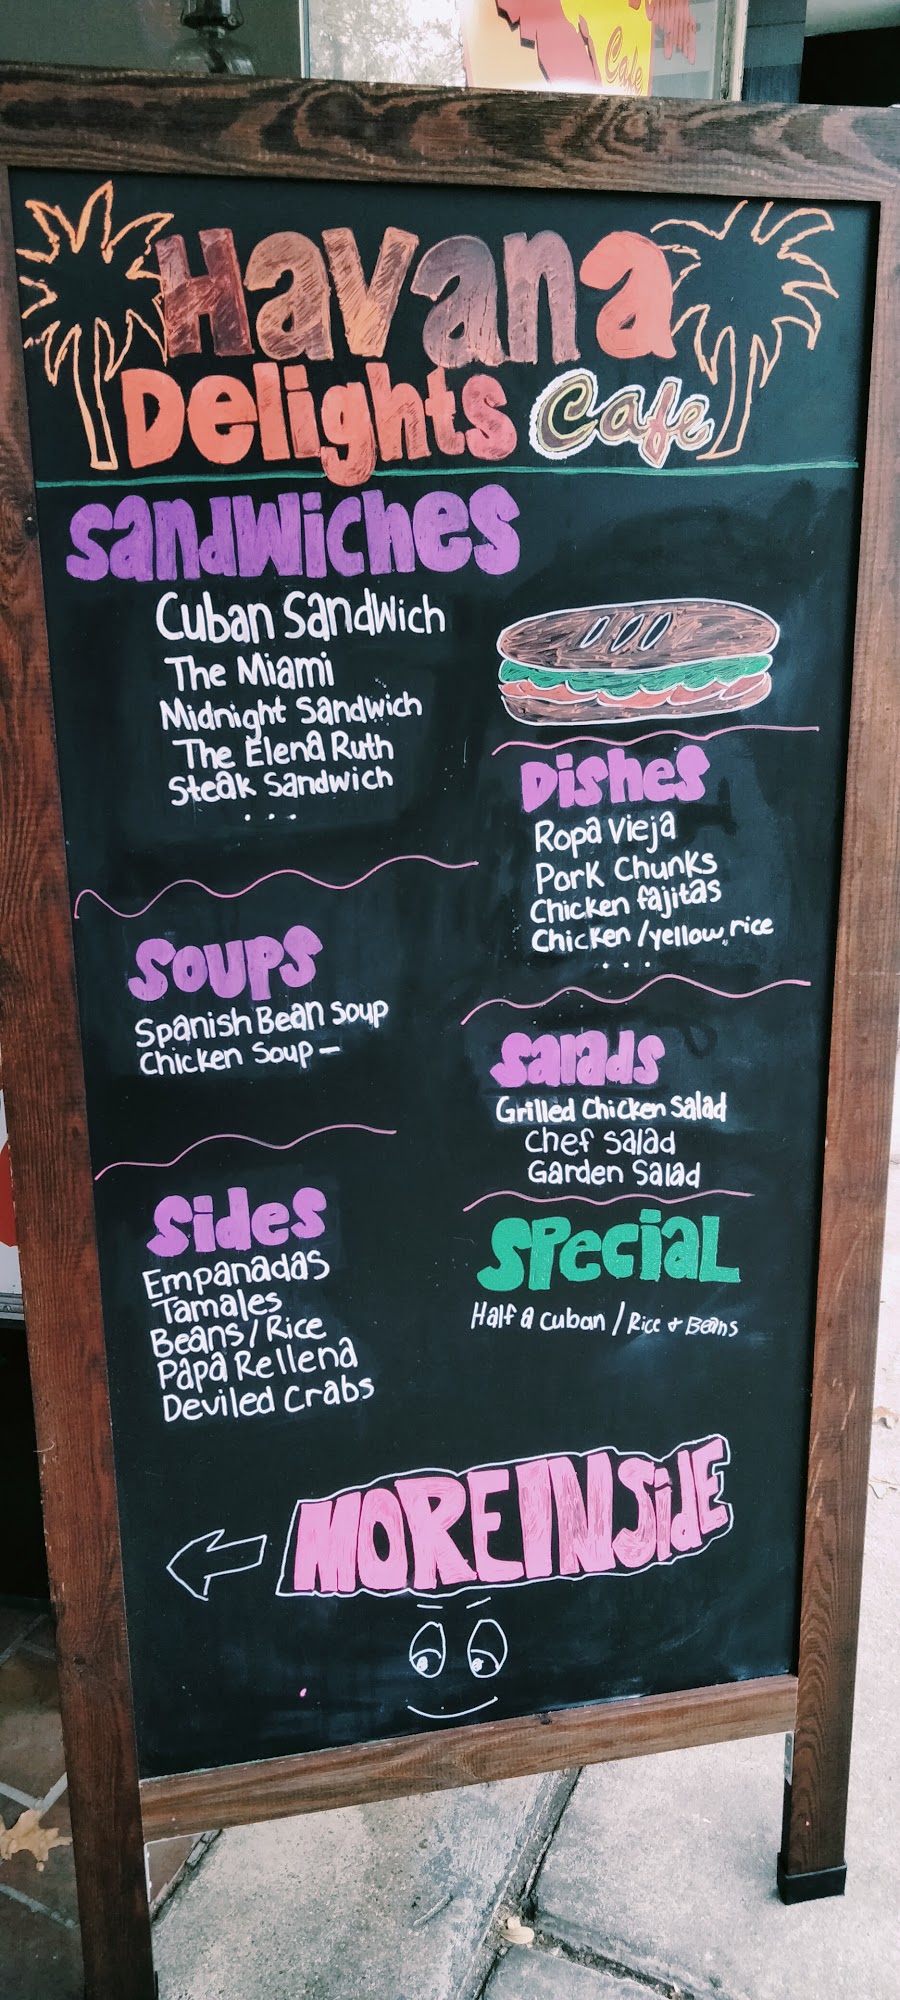 Cafe
Havana
Delights Cafe
Sandwiches
Cuban Sandwich
The Miami
Midnight Sandwich
The Elena Ruth
Steak Sandwich
...
Dishes
Ropa Vieja
Pork Chunks
Chicken fajitas
Chicken / yellow rice
...
Soups
Spanish Bean Soup
Chicken Soup -
Salads
Grilled Chicken Salad
Chef Salad
Garden Salad
Sides
Empanadas
Tamales
Beans / Rice
Papa Rellena
Deviled Crabs
Special
Half a Cuban / Rice & Beans
MORE INSidE